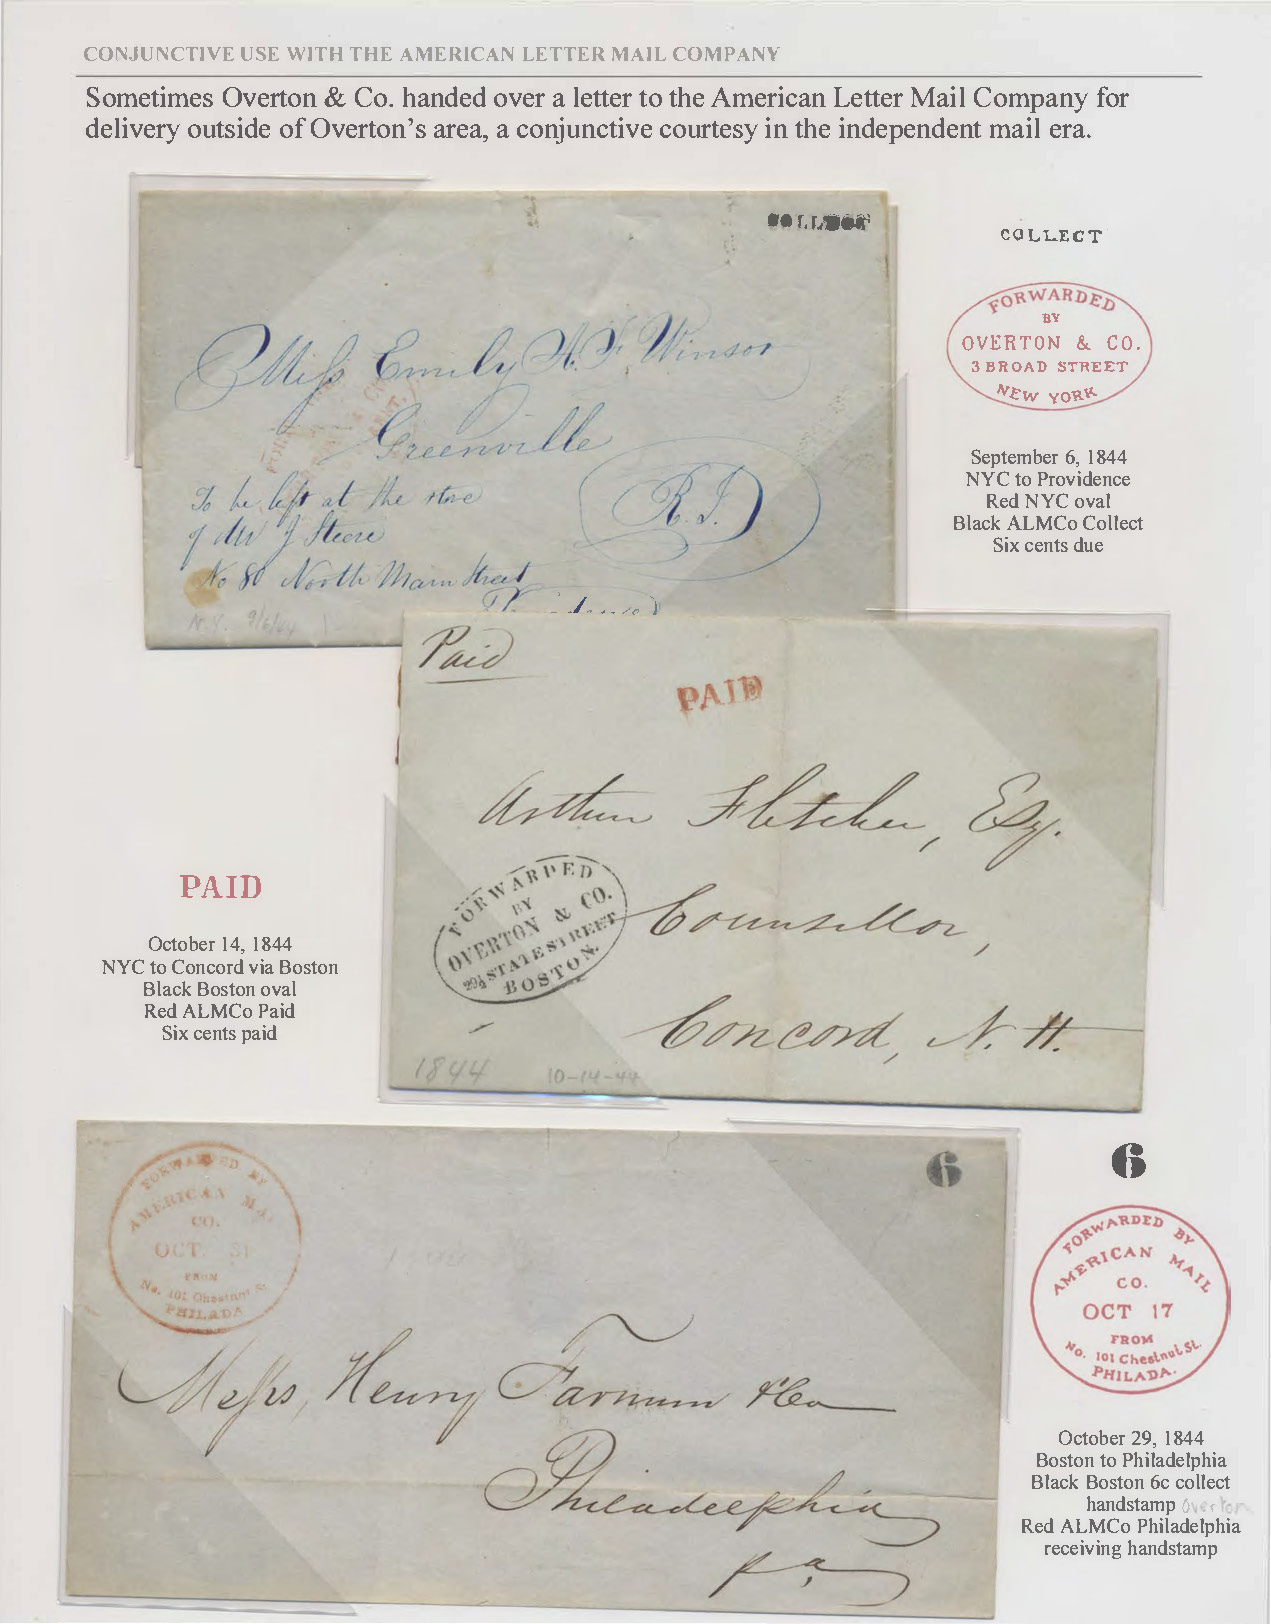 CONJUNCTIVE USE WITH THE AMERICAN LETTER MAIL COMPANY
Sometimes Overton & Co. handed over a letter to the American Letter Mail Company for
delivery outside of Overton's area, a conjunctive courtesy in the independent mail era.
COLLECT
COLLECT
FORWARDED
BY
OVERTON & CO.
3 BROAD STREET
NEW YORK
September 6, 1844
NYC to Providence
Red NYC oval
Black ALMCo Collect
Six cents due
Miss Emily A. F. Winsor
Greenville
R.I.
To be left at the store
of J Steere
No 80 North Main Street
Providence
N.Y. 9/6/44
Paid
PAID
Arthur Fletcher, Esq.
Counsellor,
Concord, N. H.
FORWARDED
BY
OVERTON & CO.
29½ STATE STREET
BOSTON.
1844 10-14-44
PAID
October 14, 1844
NYC to Concord via Boston
Black Boston oval
Red ALMCo Paid
Six cents paid
FORWARDED BY
AMERICAN MAIL
CO.
OCT 31
FROM
No. 101 Chestnut St.
PHILADA
6
Messs, Henry Farnum & Co
Philadelphia
pa.
6
FORWARDED BY
AMERICAN MAIL
CO.
OCT 17
FROM
No. 101 Chestnut St.
PHILADA.
October 29, 1844
Boston to Philadelphia
Black Boston 6c collect
handstamp Overton
Red ALMCo Philadelphia
receiving handstamp